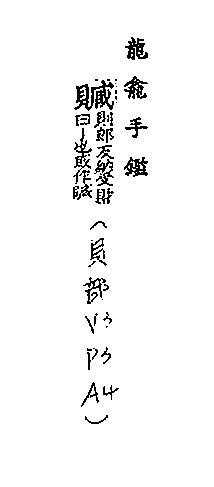 龍龕手鑑
贓則郎反納受財曰丨也或作
(貝部V3P3A4)